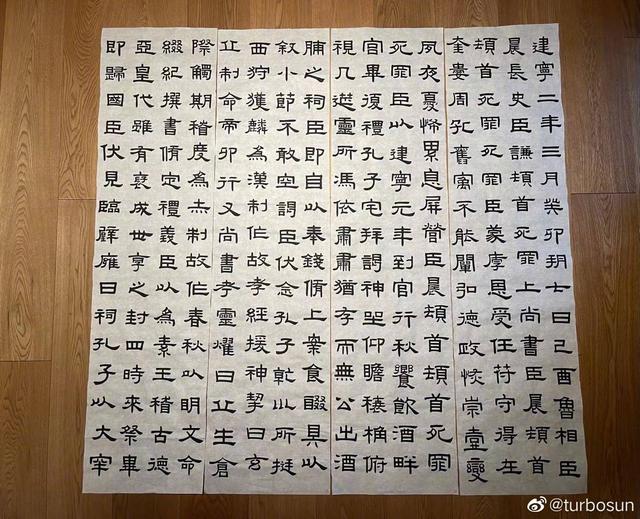 建寧二年三月癸卯朔七日己酉魯相臣
晨長史臣謙頓首死罪上尚書臣晨頓首
頓首死罪死罪臣蒙厚恩受任符守得在
奎婁周孔舊寓不能闡弘德政恢崇壹變
夙夜憂怖累息屏營臣晨頓首頓首死罪
死罪臣以建寧元年到官行秋饗飲酒畔
宮畢復禮孔子宅拜謁神坐仰瞻榱桷俯
視几筵靈所馮依肅肅猶存而無公出酒
脯之祠臣即自以奉錢脩上案食醊具以
敘小節不敢空謁臣伏念孔子乾坤所挺
西狩獲麟為漢制作故孝經援神挈曰玄
丘制命帝卯行又尚書考靈燿曰丘生倉
際觸期稽度為赤制故作春秋以明文命
綴紀撰書脩定禮義臣以為素王稽古德
亞皇代雖有褒成世享之封四時來祭畢
即歸國臣伏見臨辟雍日祠孔子以大牢
@turbosun